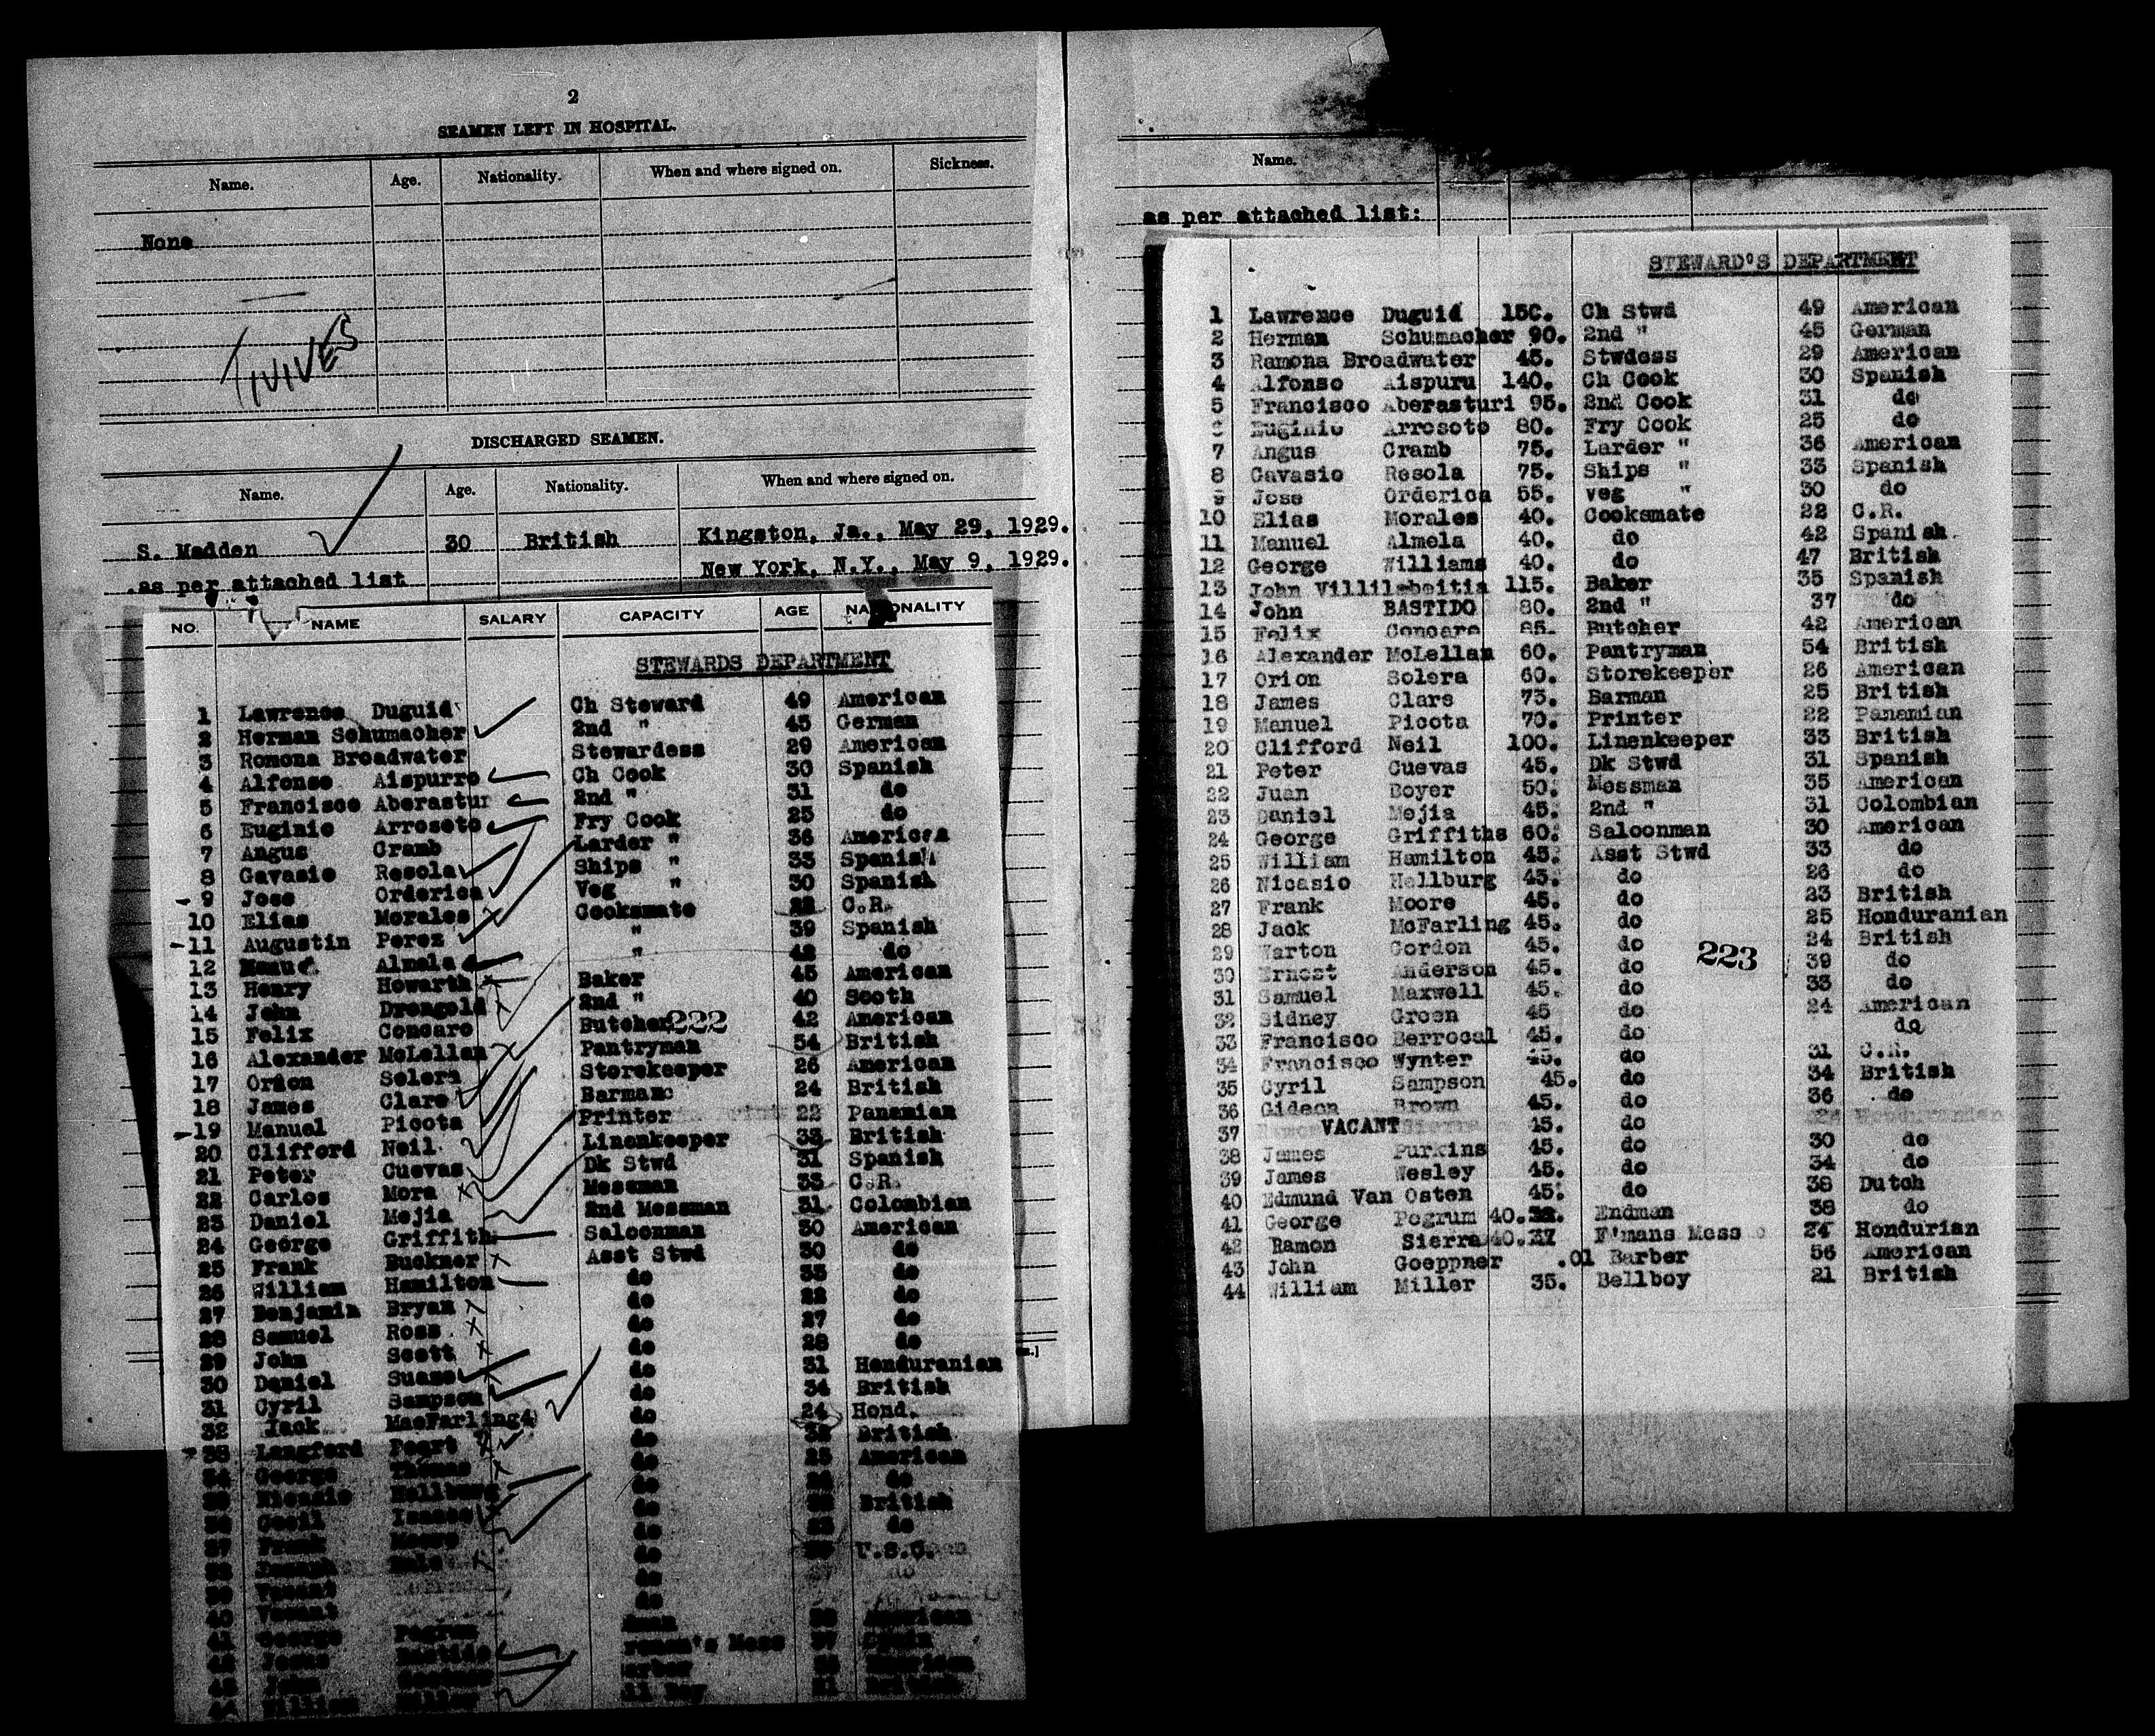 2
SEAMEN LEFT IN HOSPITAL.
Name. Age. Nationality. When and where signed on. Sickness.
None
TIVIVES
DISCHARGED SEAMEN.
Name. Age. Nationality. When and where signed on.
S. Madden 30 British Kingston, Ja., May 29, 1929.
as per attached list New York, N.Y., May 9, 1929.
NO. NAME SALARY CAPACITY AGE NATIONALITY
STEWARDS DEPARTMENT
1 Lawrence Duguid Ch Steward 49 American
2 Herman Schumacher 2nd " 45 German
3 Romona Broadwater Stewardess 29 American
4 Alfonso Aispurro Ch Cook 30 Spanish
5 Francisco Aberastur 2nd " 31 do
6 Euginio Arrosoto Fry Cook 25 do
7 Angus Cramb Larder " 36 American
8 Gavasio Resola Ships " 33 Spanish
9 Jose Orderica Veg " 30 Spanish
10 Elias Morales Cooksmate 22 C.R.
11 Augustin Perez " 39 Spanish
12 Manuel Almela " 42 do
13 Henry Howarth Baker 45 American
14 John Drengold 2nd " 40 Scoth
15 Felix Concaro Butcher 42 American
222
16 Alexander McLellan Pantryman 54 British
17 Orion Solera Storekeeper 26 American
18 James Clare Barman 24 British
19 Manuel Picota Printer 22 Panamian
20 Clifford Neil Linenkeeper 33 British
21 Peter Cuevas Dk Stwd 31 Spanish
22 Carlos Mora Messman 33 C.R.
23 Daniel Mejia 2nd Messman 31 Colombian
24 George Griffith Saloonman 30 American
25 Frank Buckner Asst Stwd 30 do
26 William Hamilton do 33 do
27 Benjamin Bryan do 22 do
28 Samuel Ross do 27 do
29 John Scott do 28 do
30 Daniel Suazo do 31 Honduranian
31 Cyril Sampson do 34 British
32 Jack MacFarling do 24 Hond.
33 Langford Peart do British
34 George Thomas do 25 American
Hellburg do do
Cecil Isaacs do British
37 Frank Moore do do
do U.S.
Vacant
40 Vacant
George Pogrum American
Mess
John
William Miller
Name.
as per attached list:
STEWARD'S DEPARTMENT
1 Lawrence Duguid 150. Ch Stwd 49 American
2 Herman Schumacher 90. 2nd " 45 German
3 Ramona Broadwater 45. Stwdess 29 American
4 Alfonso Aispuru 140. Ch Cook 30 Spanish
5 Francisco Aberasturi 95. 2nd Cook 31 do
6 Euginio Arrosoto 80. Fry Cook 25 do
7 Angus Cramb 75. Larder " 36 American
8 Gavasio Resola 75. Ships " 33 Spanish
9 Jose Orderica 55. Veg " 30 do
10 Elias Morales 40. Cooksmate 22 C.R.
11 Manuel Almela 40. do 42 Spanish.
12 George Williams 40. do 47 British
13 John Villilabeitia 115. Baker 35 Spanish
14 John BASTIDO 80. 2nd " 37 do
15 Felix Concaro 85. Butcher 42 American
16 Alexander McLellan 60. Pantryman 54 British
17 Orion Solera 60. Storekeeper 26 American
18 James Clare 75. Barman 25 British
19 Manuel Picota 70. Printer 22 Panamian
20 Clifford Neil 100. Linenkeeper 33 British
21 Peter Cuevas 45. Dk Stwd 31 Spanish
22 Juan Boyer 50. Messman 35 American
23 Daniel Mejia 45. 2nd " 31 Colombian
24 George Griffiths 60. Saloonman 30 American
25 William Hamilton 45. Asst Stwd 33 do
26 Nicasio Hellburg 45. do 26 do
27 Frank Moore 45. do 23 British
28 Jack McFarling 45. do 25 Honduranian
29 Warton Gordon 45. do 24 British
223
30 Ernest Anderson 45. do 39 do
31 Samuel Maxwell 45. do 33 do
32 Sidney Green 45 do 24 American
33 Francisco Berrocal 45. do do
34 Francisco Wynter 45. do 31 C.R.
35 Cyril Sampson 45. do 34 British
36 Gideon Brown 45. do 36 do
37 VACANT 45. do
38 James Purkins 45. do 30 do
39 James Wesley 45. do 34 do
40 Edmund Van Osten 45. do 38 Dutch
41 George Pogrum 40. Endman 38 do
42 Ramon Sierra 40. F'mans Mess 24 Hondurian
43 John Goeppner .01 Barber 56 American
44 William Miller 35. Bellboy 21 British